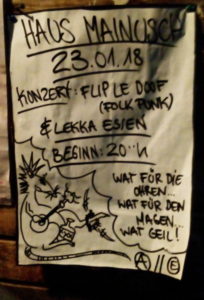 HAUS MAINUSCH
23.01.18
KONZERT: FLIP LE DOOF
(FOLK PUNK)
& LEKKA ESSEN
BEGINN: 20°°h
WAT FÜR DIE
OHREN...
WAT FÜR DEN
MAGEN...
WAT GEIL!